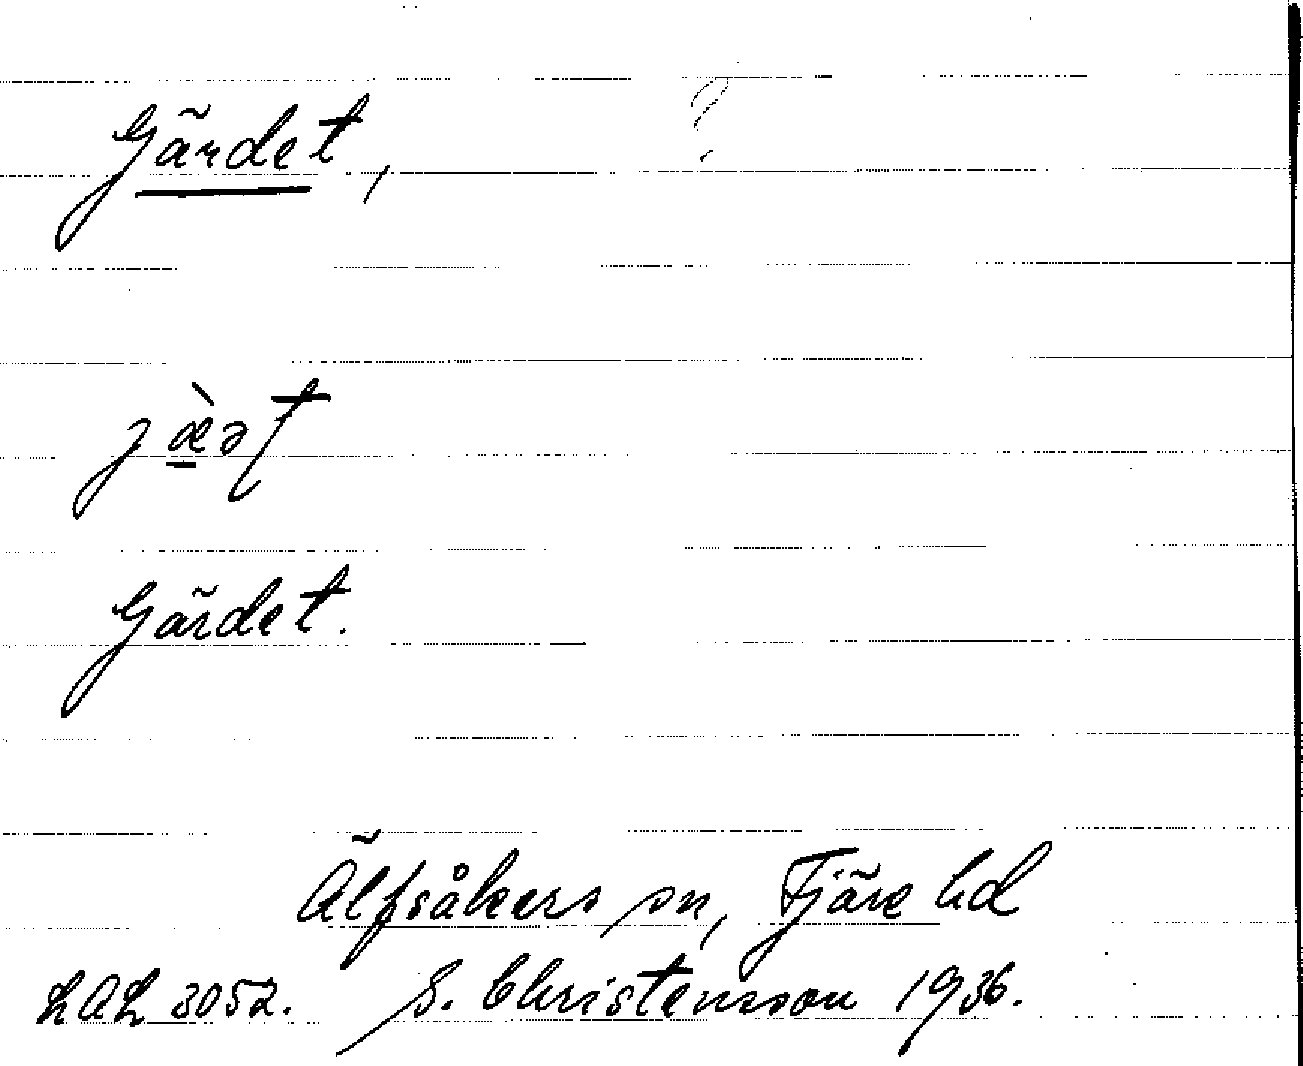 Gärdet,
jæ̀ət
Gärdet.
Älfsåkers sn, Fjäre hd
LAL 3052. S. Christensson 1936.